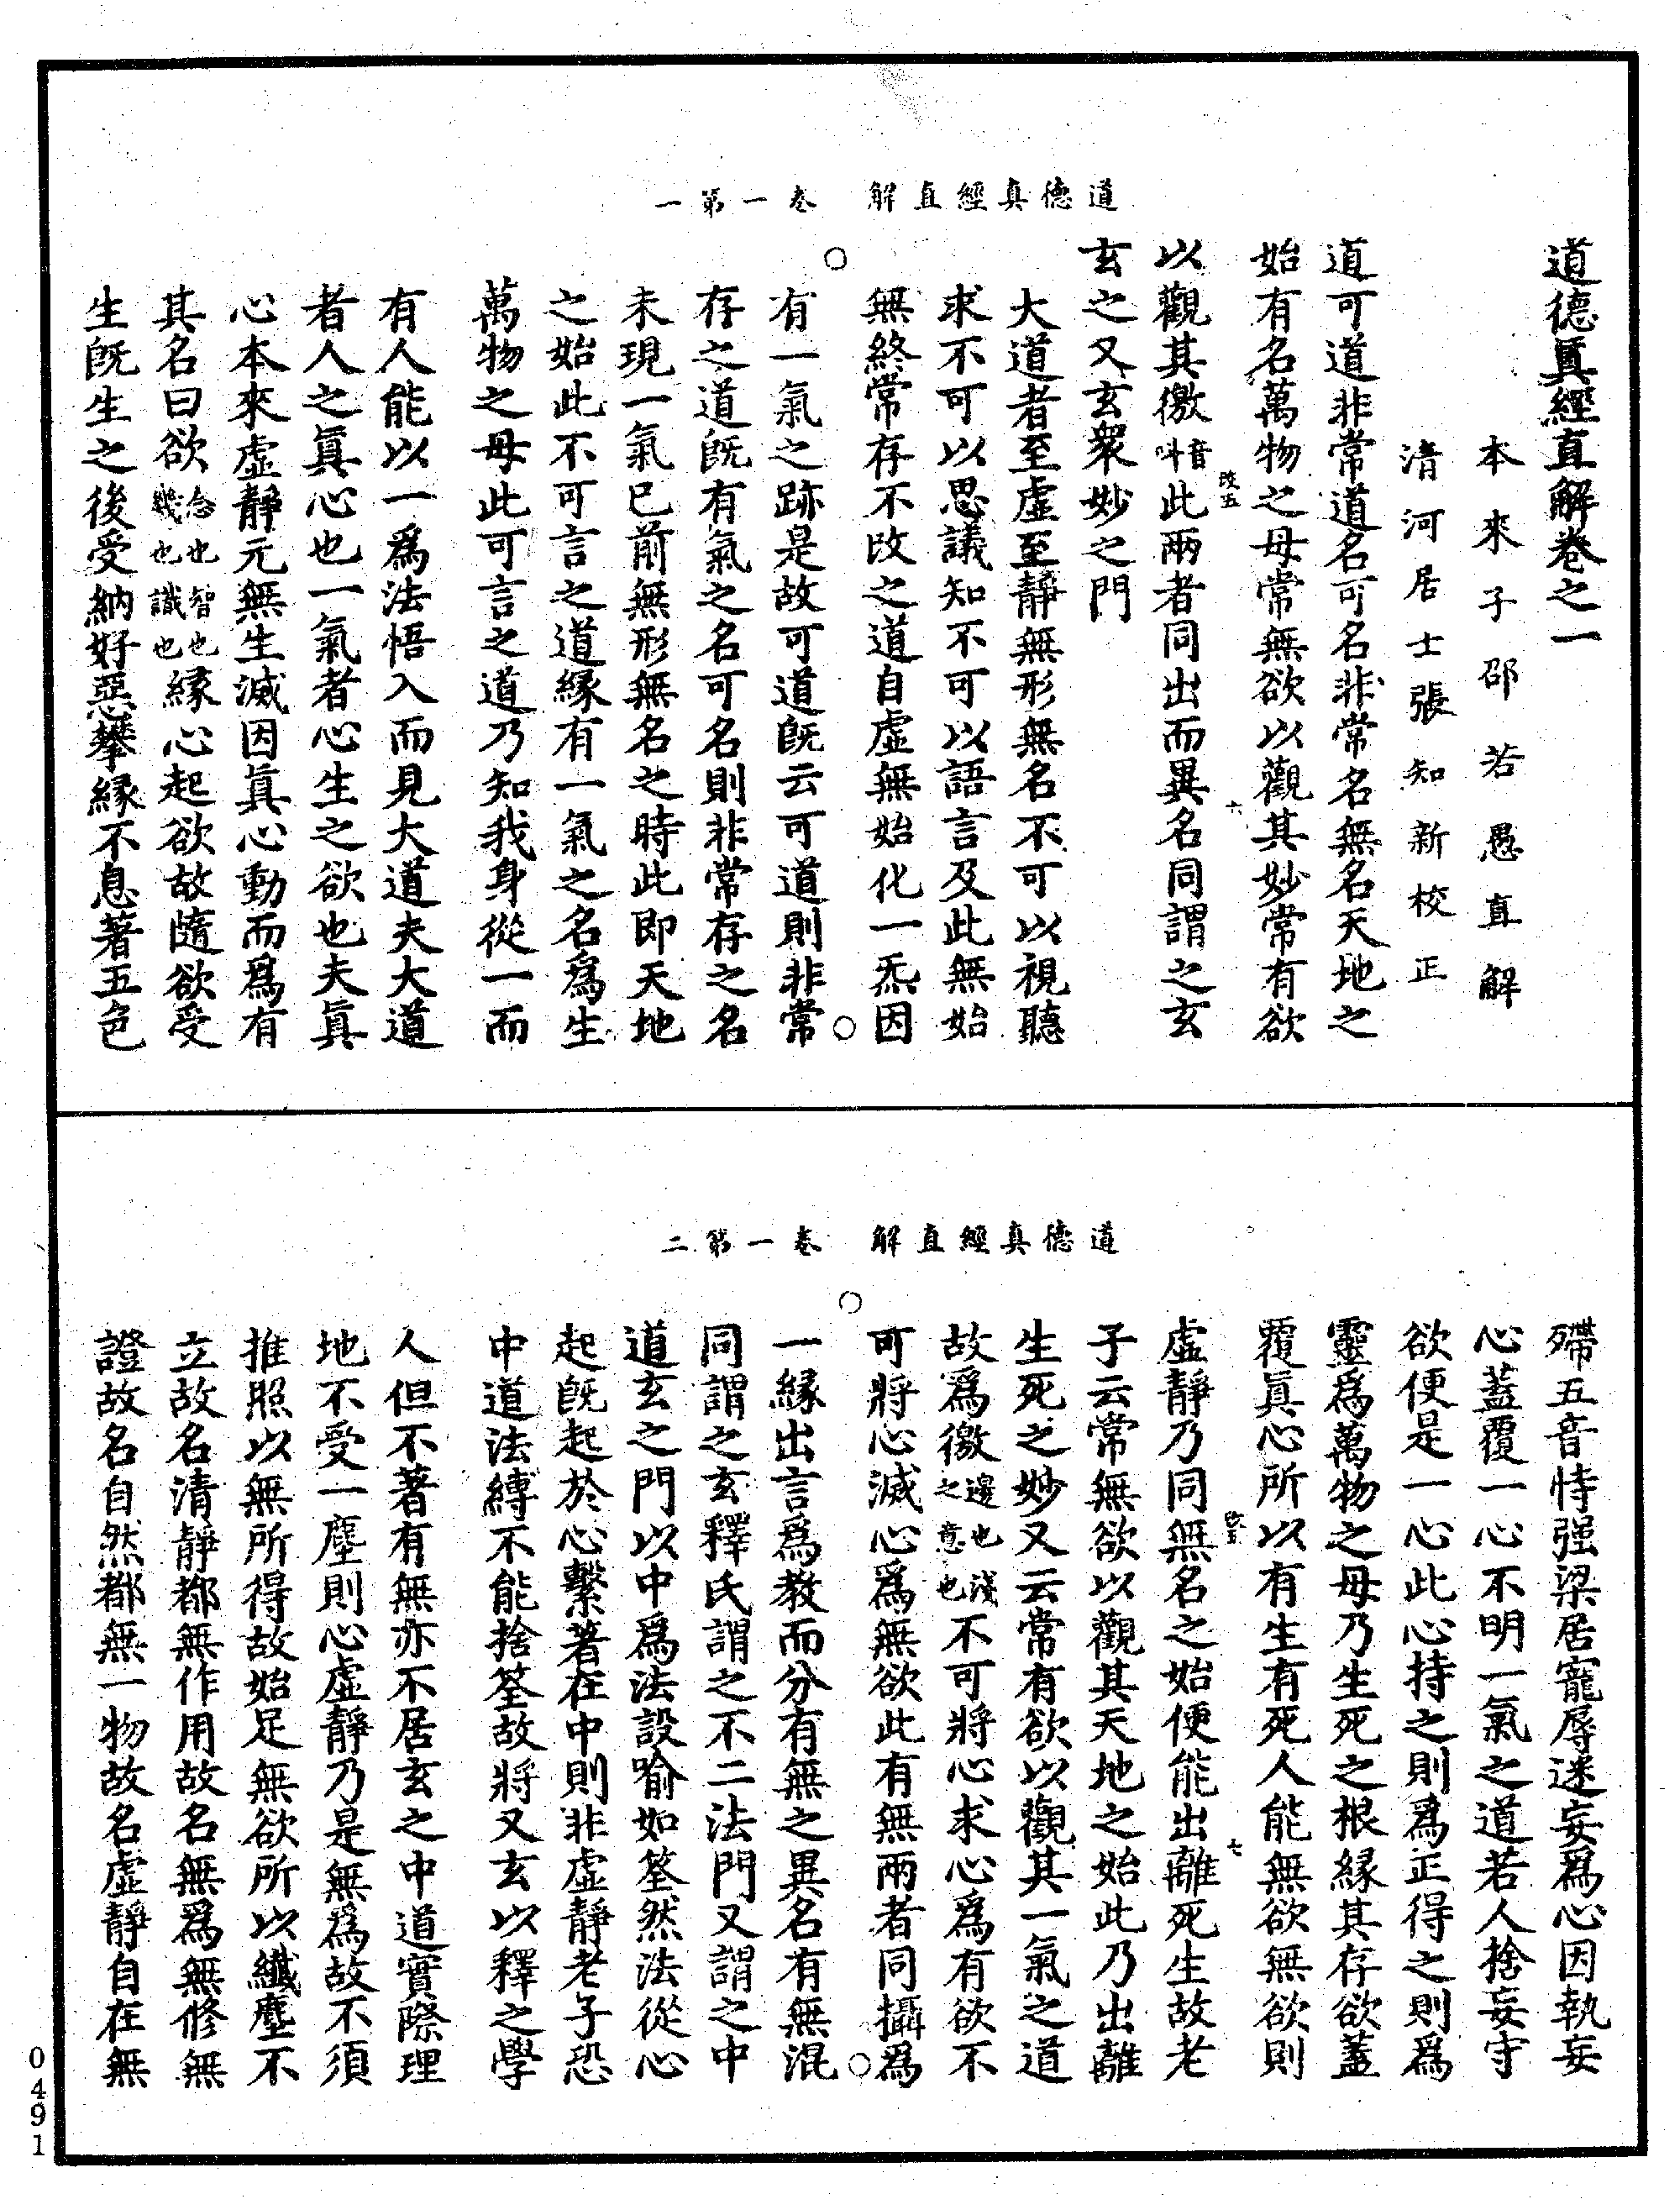 道德真經直解卷之一
本來子邵若愚直解
清河居士張知新校正
道可道非常道名可名非常名無名天地之
始有名萬物之母常無欲以觀其妙常有欲
改五
六
以觀其徼音叫此兩者同出而異名同謂之玄
玄之又玄衆妙之門
大道者至虛至靜無形無名不可以視聽
求不可以思議知不可以語言及此無始
無終常存不改之道自虛無始化一炁因
道德真經直解 卷一第一
有一氣之跡是故可道旣云可道則非常
存之道旣有氣之名可名則非常存之名
未現一氣已前無形無名之時此即天地
之始此不可言之道緣有一氣之名爲生
萬物之母此可言之道乃知我身從一而
有人能以一爲法悟入而見大道夫大道
者人之眞心也一氣者心生之欲也夫眞
心本來虛靜元無生滅因眞心動而爲有
其名曰欲念也智也機也識也緣心起欲故隨欲受
生旣生之後受納好惡攀緣不息著五色
殢五音恃强梁居寵辱迷妄爲心因執妄
心蓋覆一心不明一氣之道若人捨妄守
欲便是一心此心持之則爲正得之則爲
靈爲萬物之母乃生死之根緣其存欲蓋
覆眞心所以有生有死人能無欲無欲則
七
虛靜乃同無名之始便能出離死生故老
子云常無欲以觀其天地之始此乃出離
生死之妙又云常有欲以觀其一氣之道
故爲徼邊也淺之意也不可將心求心爲有欲不
可將心滅心爲無欲此有無兩者同攝爲
道德真經直解 卷一第二
一緣出言爲教而分有無之異名有無混
同謂之玄釋氏謂之不二法門又謂之中
道玄之門以中爲法設喻如筌然法從心
起旣起於心繫著在中則非虛靜老子恐
中道法縛不能捨筌故將又玄以釋之學
人但不著有無亦不居玄之中道實際理
地不受一塵則心虛靜乃是無爲故不須
推照以無所得故始足無欲所以纖塵不
立故名清靜都無作用故名無爲無修無
證故名自然都無一物故名虛靜自在無
0491